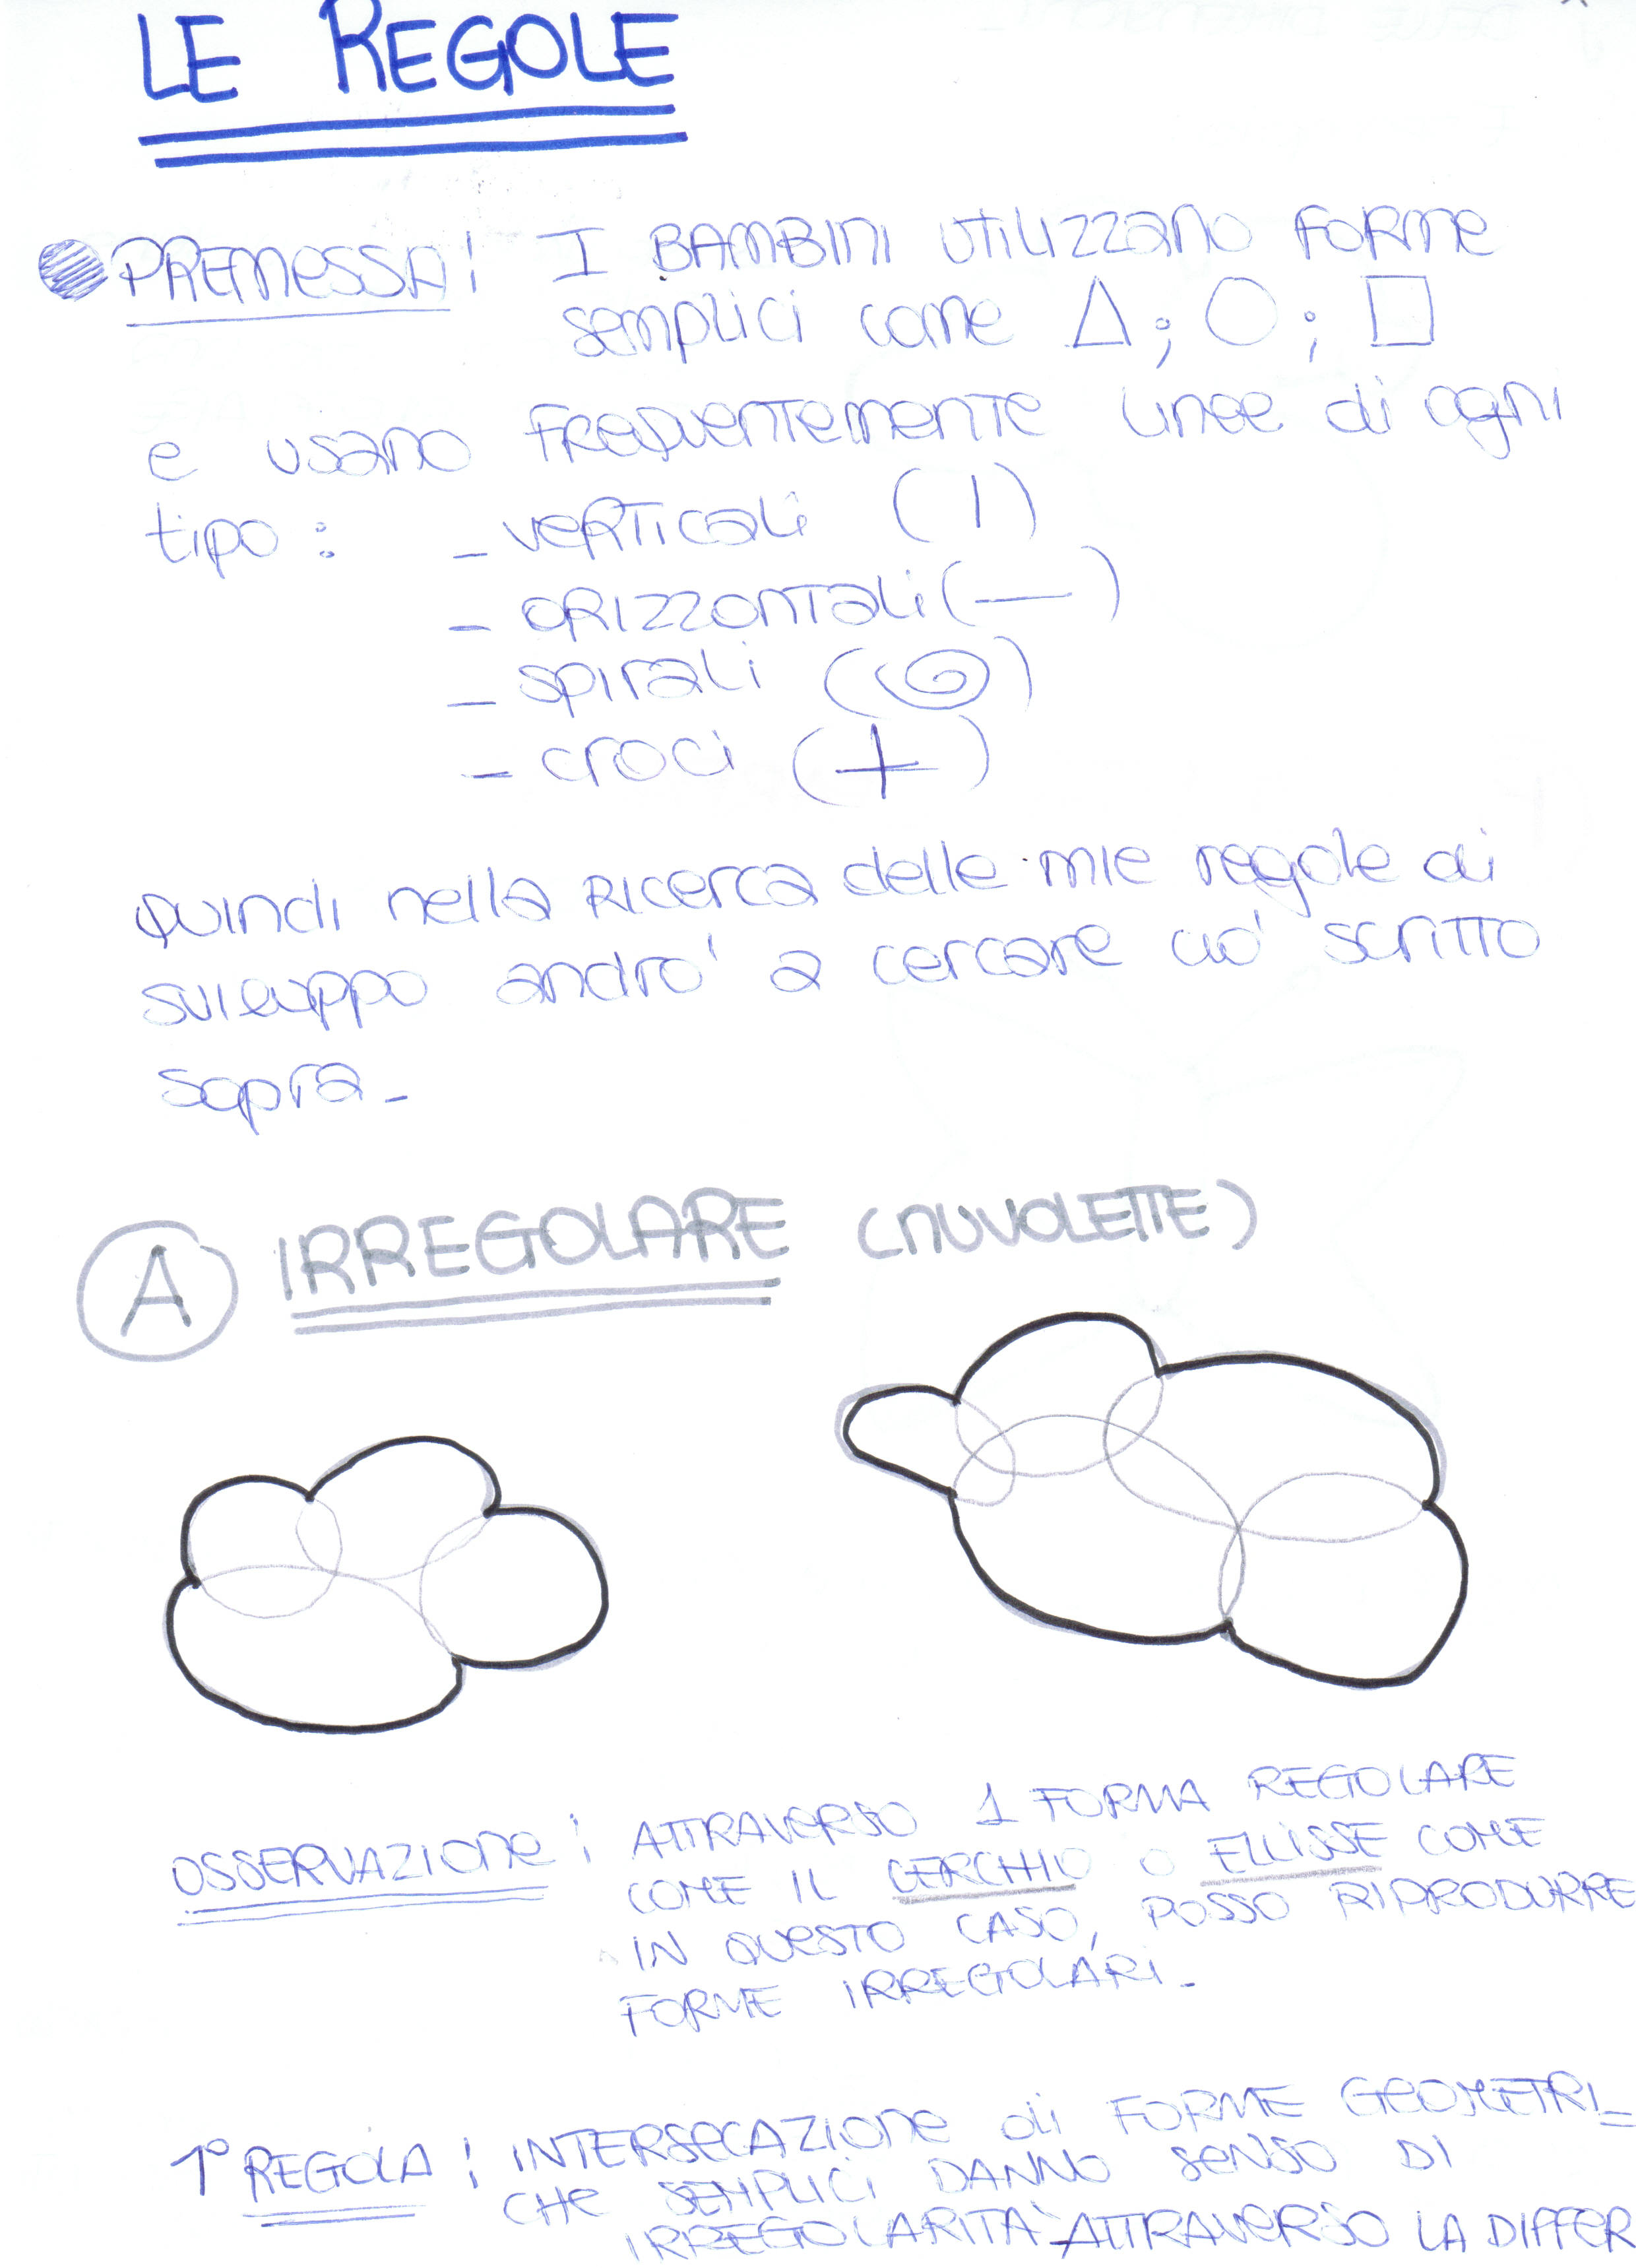 LE REGOLE
PREMESSA: I BAMBINI UTILIZZANO FORME
semplici come △; ○; □
e usano FREQUENTEMENTE linee di ogni
tipo: - VERTICALI (|)
- ORIZZONTALI (—)
- SPIRALI ( )
- croci (+)
QUINDI nella RICERCA delle mie regole di
sviluppo andro' a cercare ciò scritto
sopra_
A IRREGOLARE (NUVOLETTE)
OSSERVAZIONE: ATTRAVERSO 1 FORMA REGOLARE
COME IL CERCHIO o ELLISSE COME
IN QUESTO CASO, POSSO RIPRODURRE
FORME IRREGOLARI_
1° REGOLA: INTERSECAZIONE di FORME GEOMETRI_
CHE SEMPLICI DANNO SENSO DI
IRREGOLARITA' ATTRAVERSO LA DIFFER